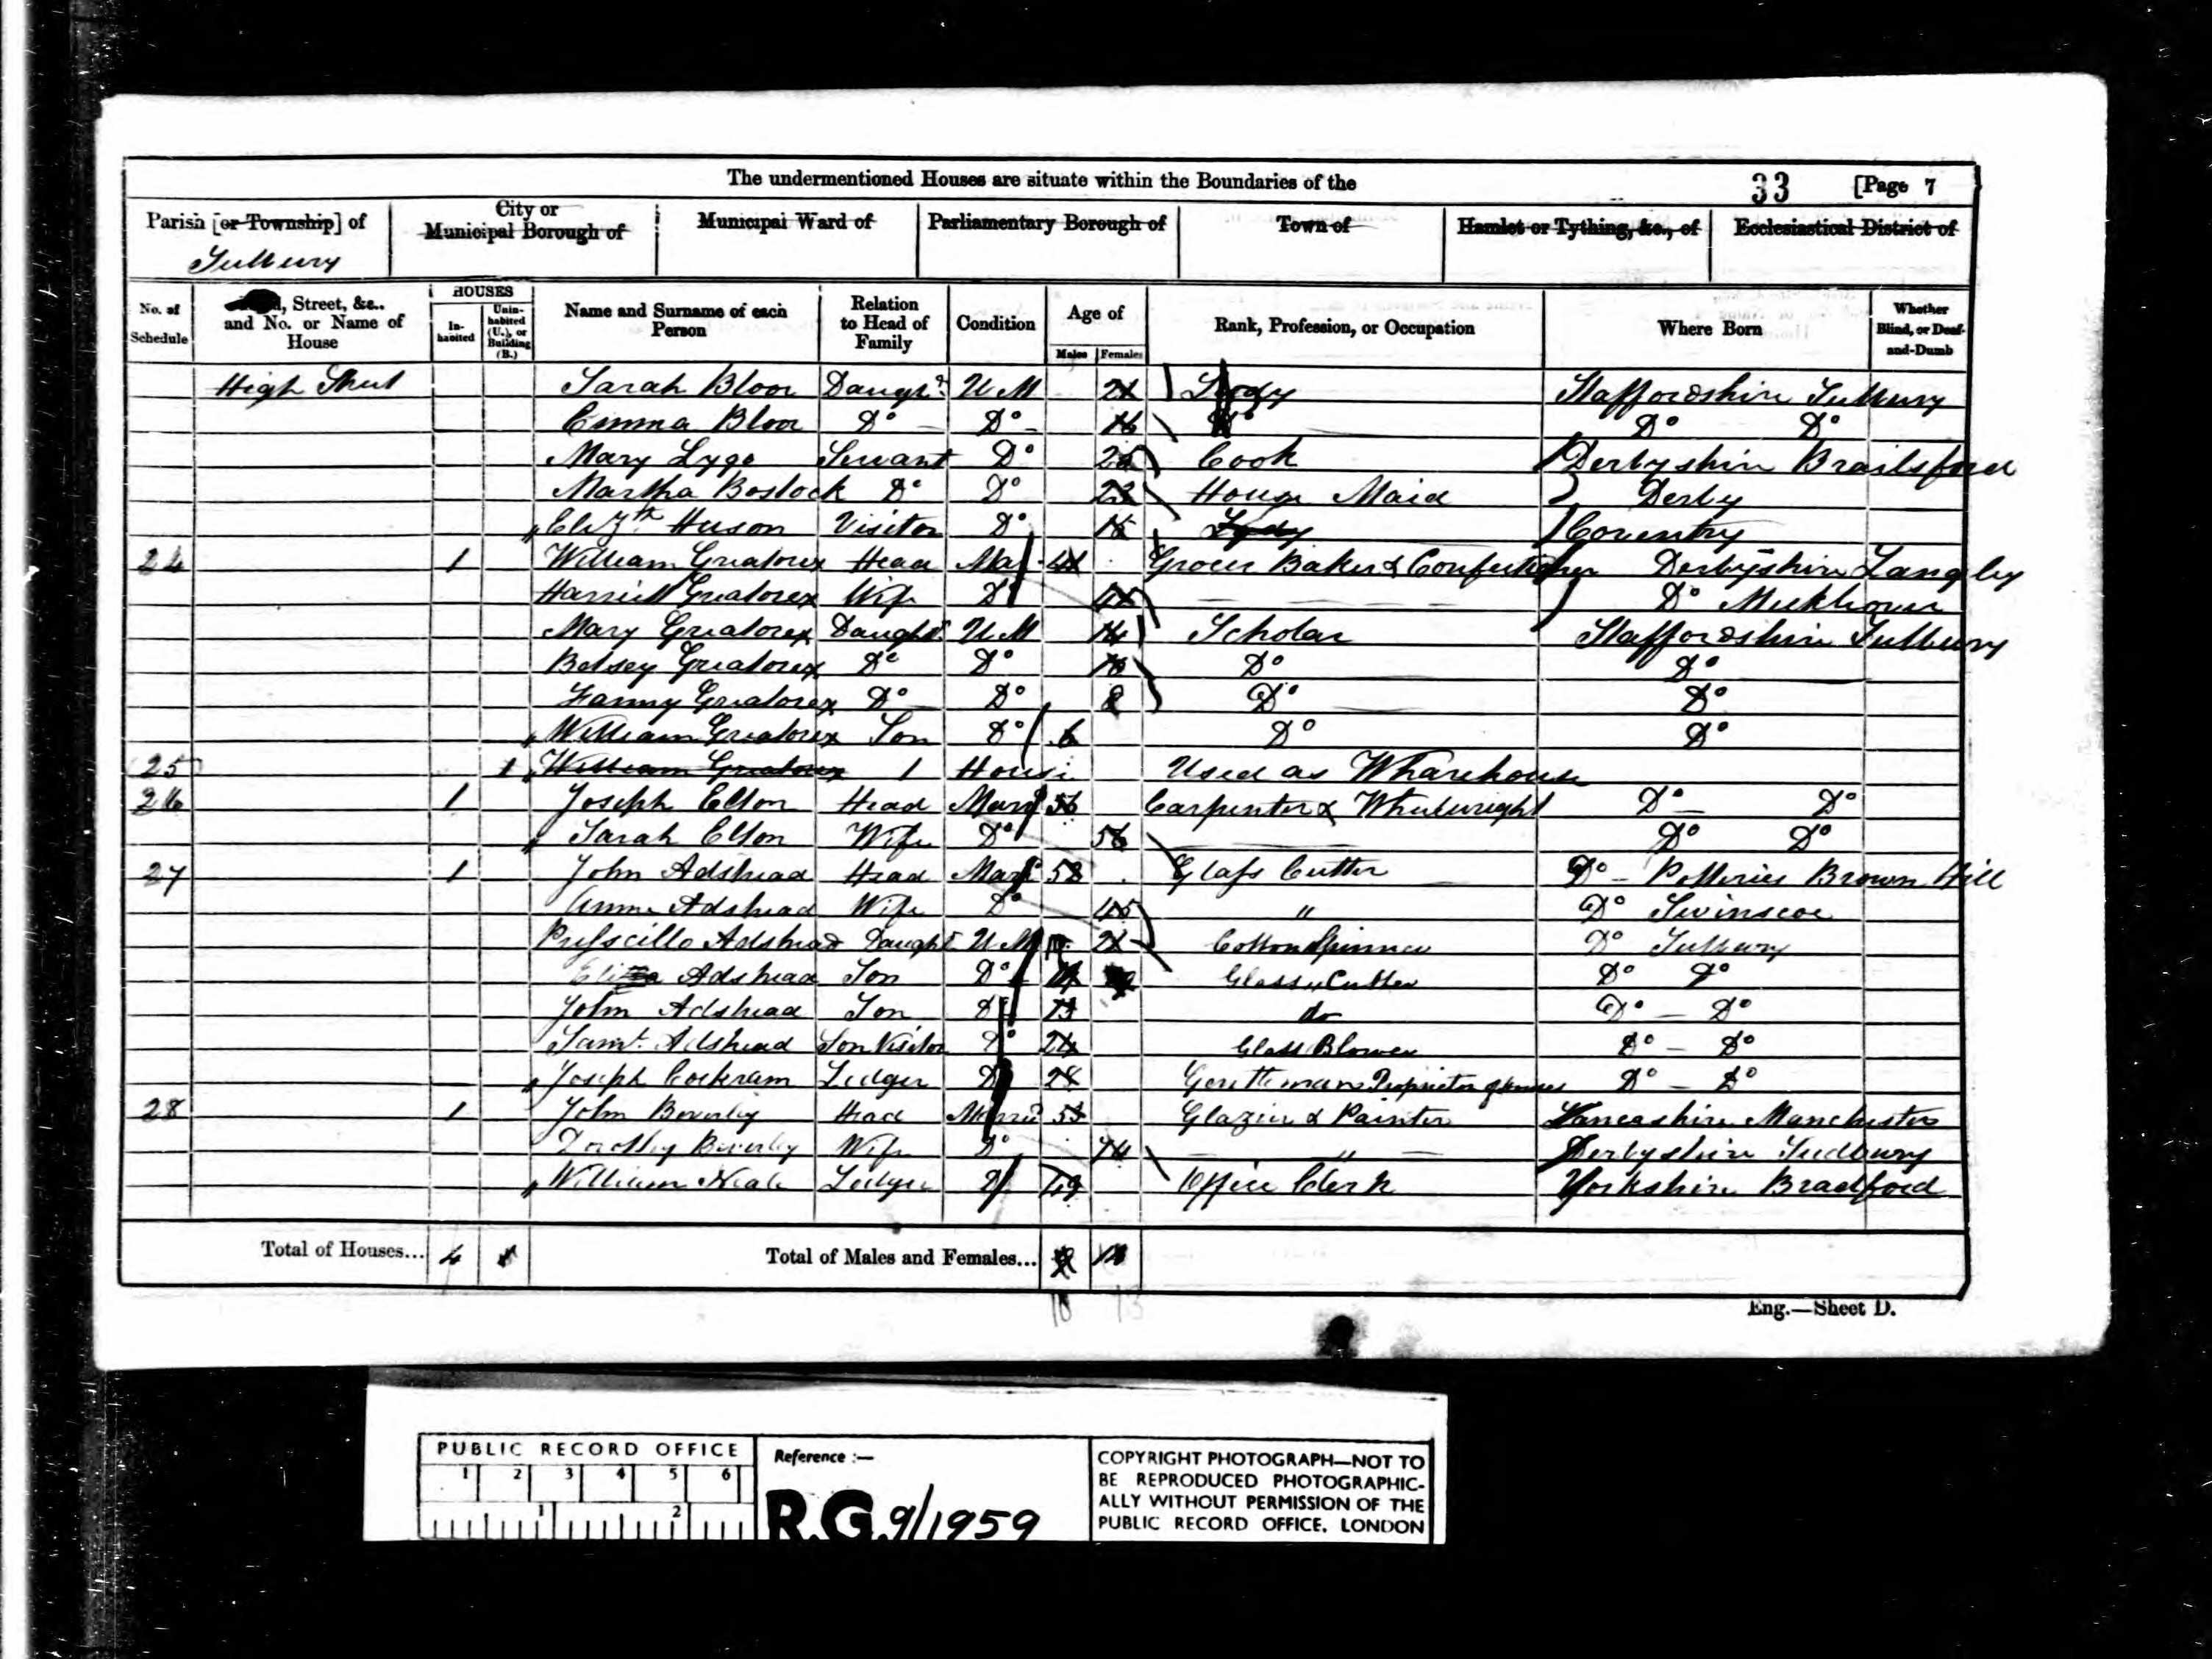 The undermentioned Houses are situate within the Boundaries of the 33 [Page 7
Parish [or Township] of City or Municipal Borough of Municipal Ward of Parliamentary Borough of Town of Hamlet or Tything, &c., of Ecclesiastical District of
Tutbury
No. of Schedule , Street, &c.. and No. or Name of House HOUSES In-habited Unin-habited (U.), or Building (B.) Name and Surname of each Person Relation to Head of Family Condition Age of Males Females Rank, Profession, or Occupation Where Born Whether Blind, or Deaf-and-Dumb
High Street Sarah Bloor Daugr. U M 21 Lady Staffordshire Tutbury
Emma Bloor Do Do 16 Do Do Do
Mary Lygo Servant Do Cook Derbyshire Brailsford
Martha Bostock Do Do 23 House Maid Derby
Elizth Huson Visitor Do 15 Lady Coventry
24 1 William Greatorex Head Mar Grocer Baker & Confectioner Derbyshire Langley
Harriett Greatorex Wife Do Do
Mary Greatorex Daught U M 14 Scholar Staffordshire Tutbury
Betsey Greatorex Do Do 10 Do Do
Fanny Greatorex Do Do 8 Do Do
William Greatorex Son Do 6 Do Do
25 1 William Greatorex 1 House Used as Wharehouse
26 1 Joseph Elton Head Mar 56 Carpenter & Wheelwright Do Do
Sarah Elton Wife Do 56 Do Do
27 1 John Adshead Head Mar 58 Glass Cutter Do Potteries Brown Hill
Anne Adshead Wife Do 45 " Do Swinscoe
Presscilla Adshead Daught U M 21 Cotton Spinner Do Tutbury
Adshead Son Do Glass Cutter Do Do
John Adshead Son Do 13 do Do Do
Saml. Adshead Son Visitor Do 24 Glass Blower Do Do
Joseph Cockram Lodger Do 28 Gentleman Proprietor of houses Do Do
28 1 John Beverley Head Marrid 53 Glazier & Painter Lancashire Manchester
Dorothy Beverley Wife Do 74 " Derbyshire Sudbury
William Neale Lodger Do 49 Office Clerk Yorkshire Bradford
Total of Houses... 4 1 Total of Males and Females...
10 13
Eng.—Sheet D.
PUBLIC RECORD OFFICE
1 2 3 4 5 6
1 2
Reference :—
R.G. 9/1959
COPYRIGHT PHOTOGRAPH—NOT TO
BE REPRODUCED PHOTOGRAPHIC-
ALLY WITHOUT PERMISSION OF THE
PUBLIC RECORD OFFICE, LONDON